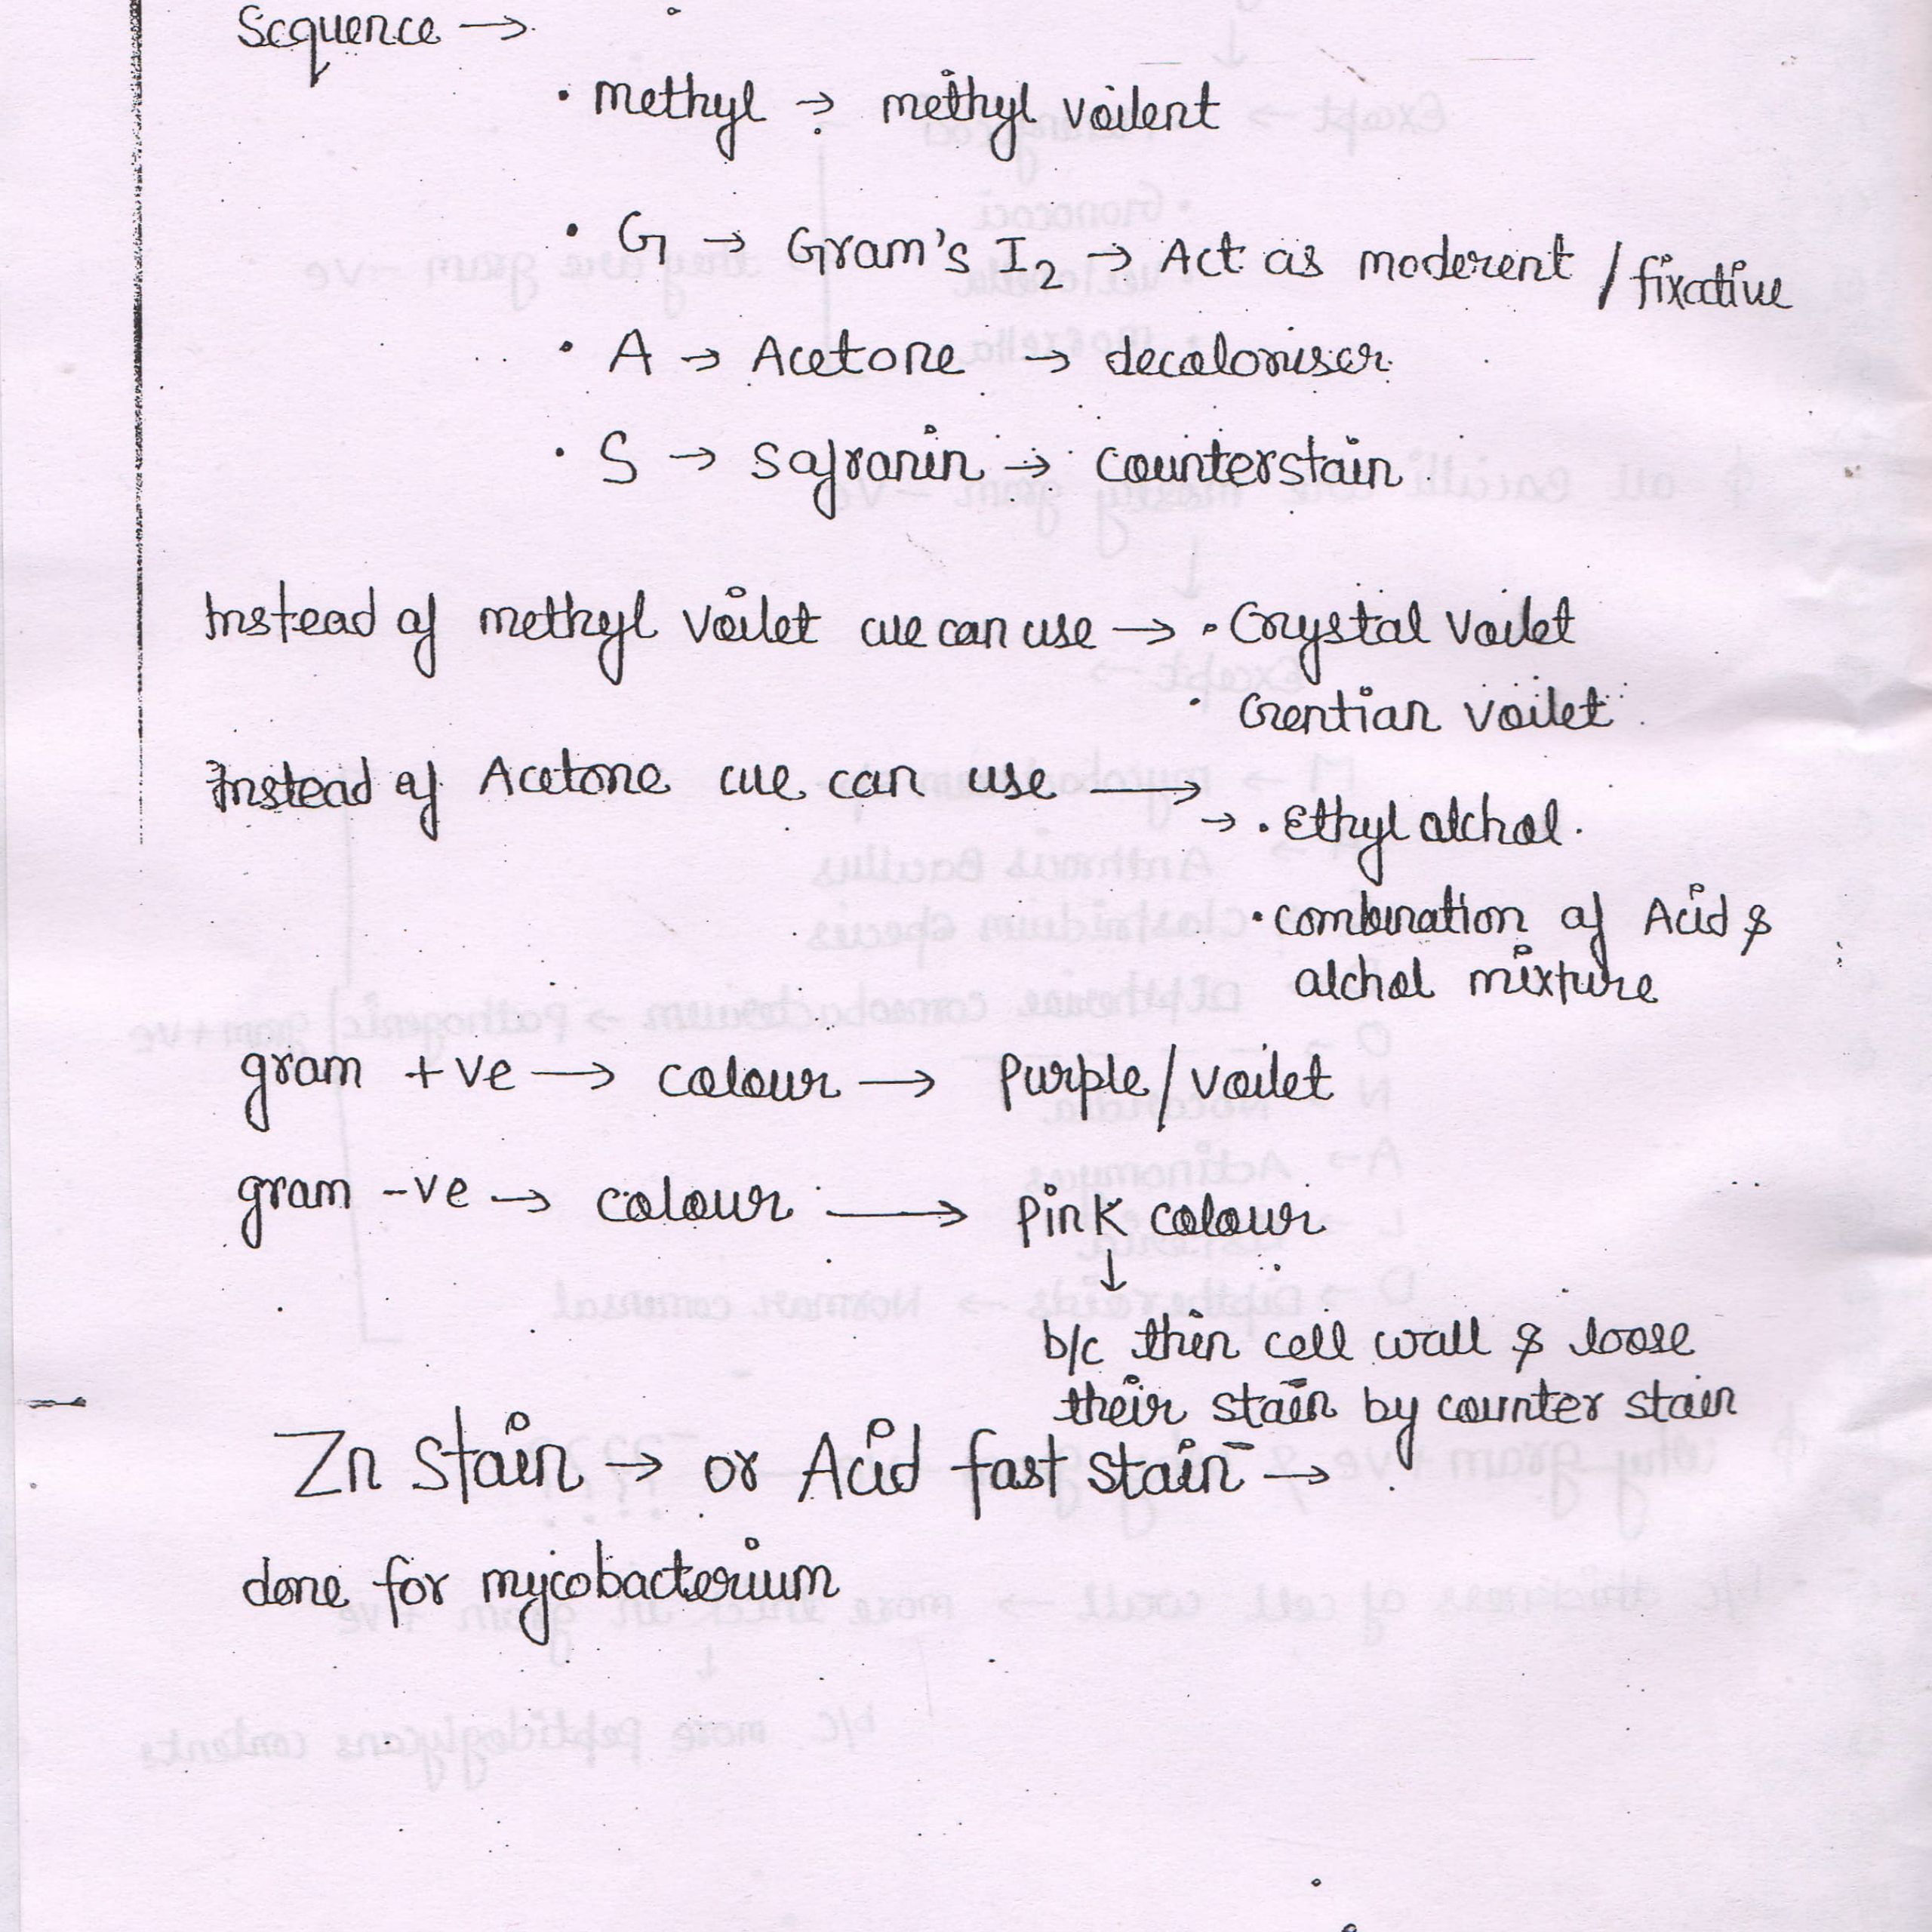 Sequence →
• Methyl → methyl voilent
• G → Gram's I2 → Act as moderent / fixative
• A → Acetone → decolouriser
• S → Safranin → counterstain
Instead of methyl voilet we can use → • Crystal voilet
• Gentian voilet
Instead of Acetone we can use →
→ • Ethyl alchol.
• combination of Acid & 
alchol mixture
gram +ve → colour → Purple/voilet
gram -ve → colour → Pink colour
↓
b/c thin cell wall & loose
their stain by counter stain
Zn Stain → or Acid fast stain →
done for mycobacterium